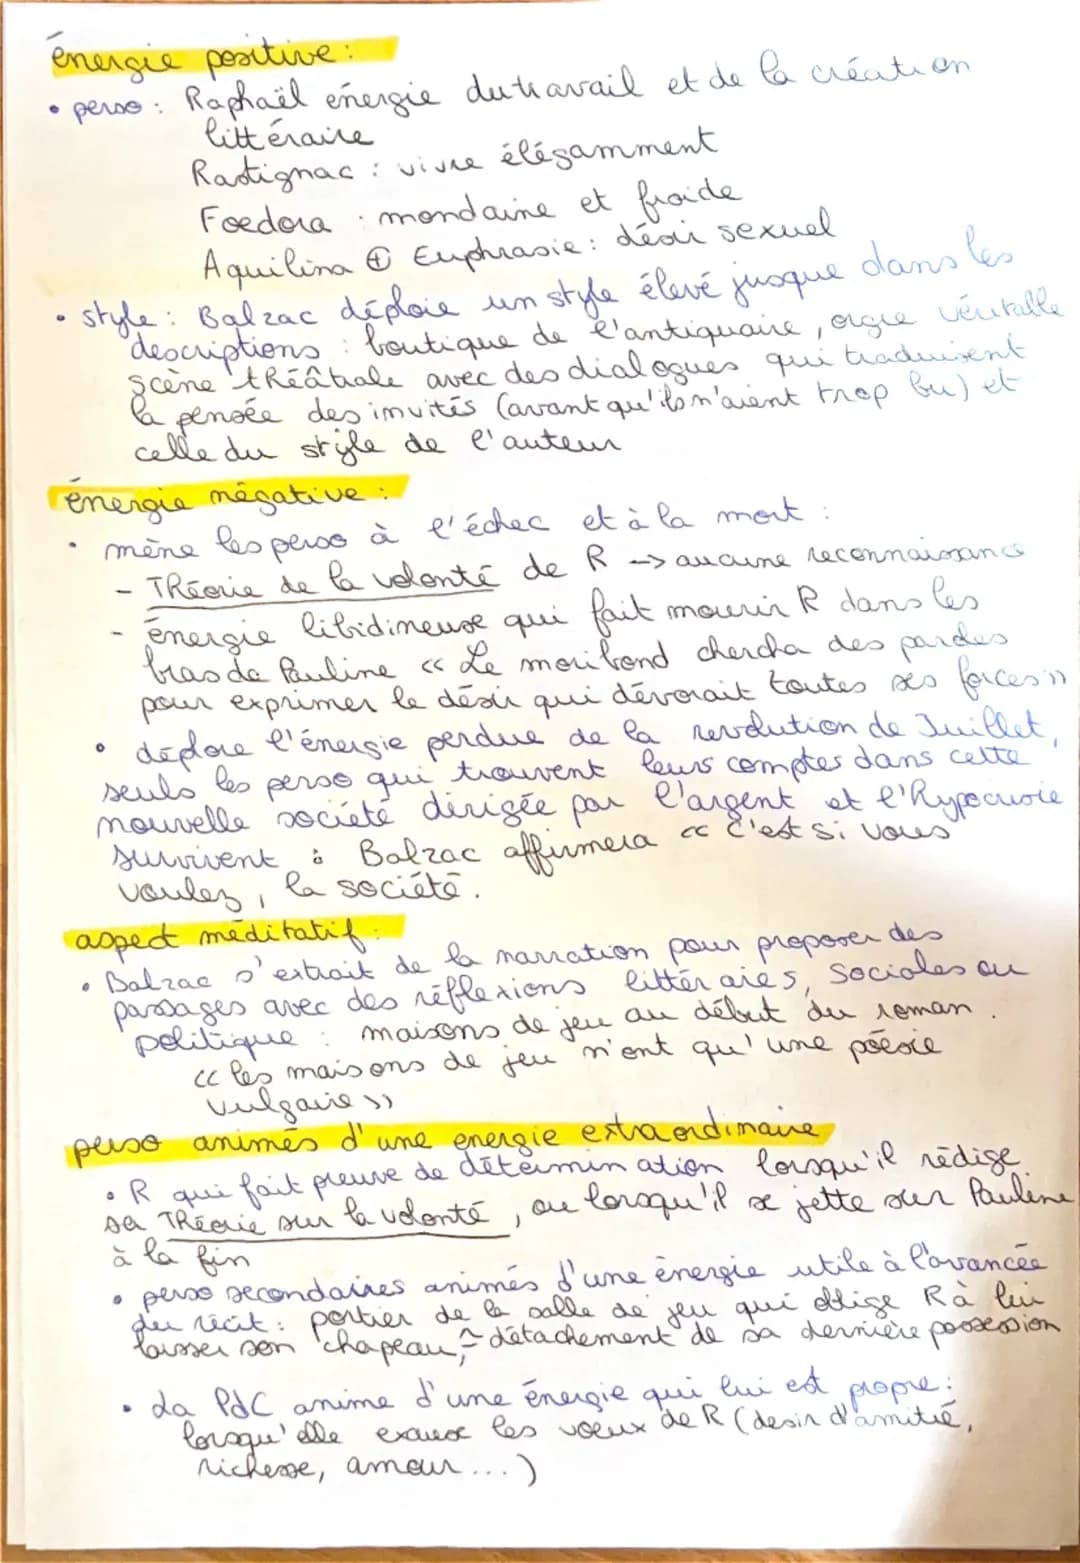 énergie positive :
• perso : Raphaël énergie du travail et de la création
littéraire
Rastignac : vivre élégamment
Foedora : mondaine et froide
Aquilina ⊕ Euphrasie : désir sexuel
• style : Balzac déploie un style élevé jusque dans les
descriptions : boutique de l'antiquaire, orgie véritable
scène théâtrale avec des dialogues qui traduisent
la pensée des invités (avant qu'ils n'aient trop bu) et
celle du style de l'auteur
énergie négative :
• mène les perso à l'échec et à la mort :
- Théorie de la volonté de R -> aucune reconnaissance
- énergie libidineuse qui fait mourir R dans les
bras de Pauline « Le moribond chercha des paroles
pour exprimer le désir qui dévorait toutes ses forces »
• déplore l'énergie perdue de la revolution de Juillet,
seuls les perso qui trouvent leurs comptes dans cette
nouvelle société dirigée par l'argent et l'hypocrisie
survivent : Balzac affirmera « c'est si vous
voulez, la société.
aspect méditatif :
• Balzac s'extrait de la narration pour proposer des
passages avec des réflexions littéraies, sociales ou
politique : maisons de jeu au début du roman.
« les maisons de jeu n'ont qu'une poésie
vulgaire »
perso animés d'une energie extraordinaire
• R qui fait preuve de détermination lorsqu'il rédige
sa Théorie sur la volonté, ou lorsqu'il se jette sur Pauline
à la fin
• perso secondaires animés d'une énergie utile à l'avancée
du récit : portier de la salle de jeu qui oblige R à lui
laisser son chapeau, ~ détachement de sa dernière possession
• La PdC anime d'une énergie qui lui est propre :
lorsqu'elle exauce les voeux de R (desir d'amitié,
richesse, amour...)